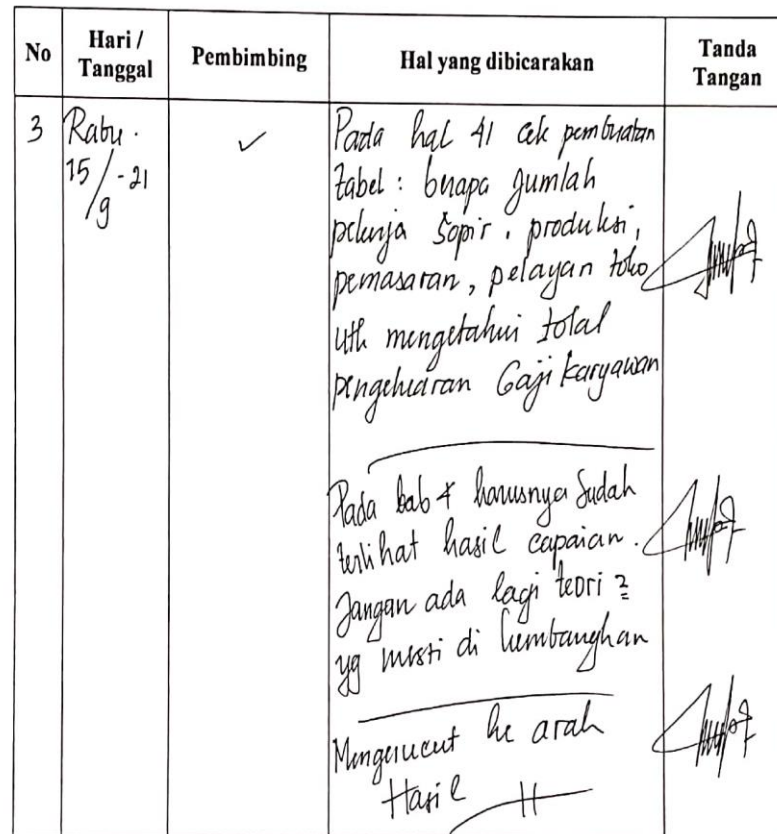 No Hari / Tanggal Pembimbing Hal yang dibicarakan Tanda Tangan
3 Rabu. ✓ Pada hal 41 cek pembuatan
15/9-21 tabel : berapa jumlah
pekerja sopir, produksi,
pemasaran, pelayan toko
utk mengetahui total
pengeluaran Gaji karyawan
Pada bab 4 harusnya sudah
terlihat hasil capaian.
Jangan ada lagi teori 2
yg mesti di kembangkan
Mengerucut ke arah
Hasil